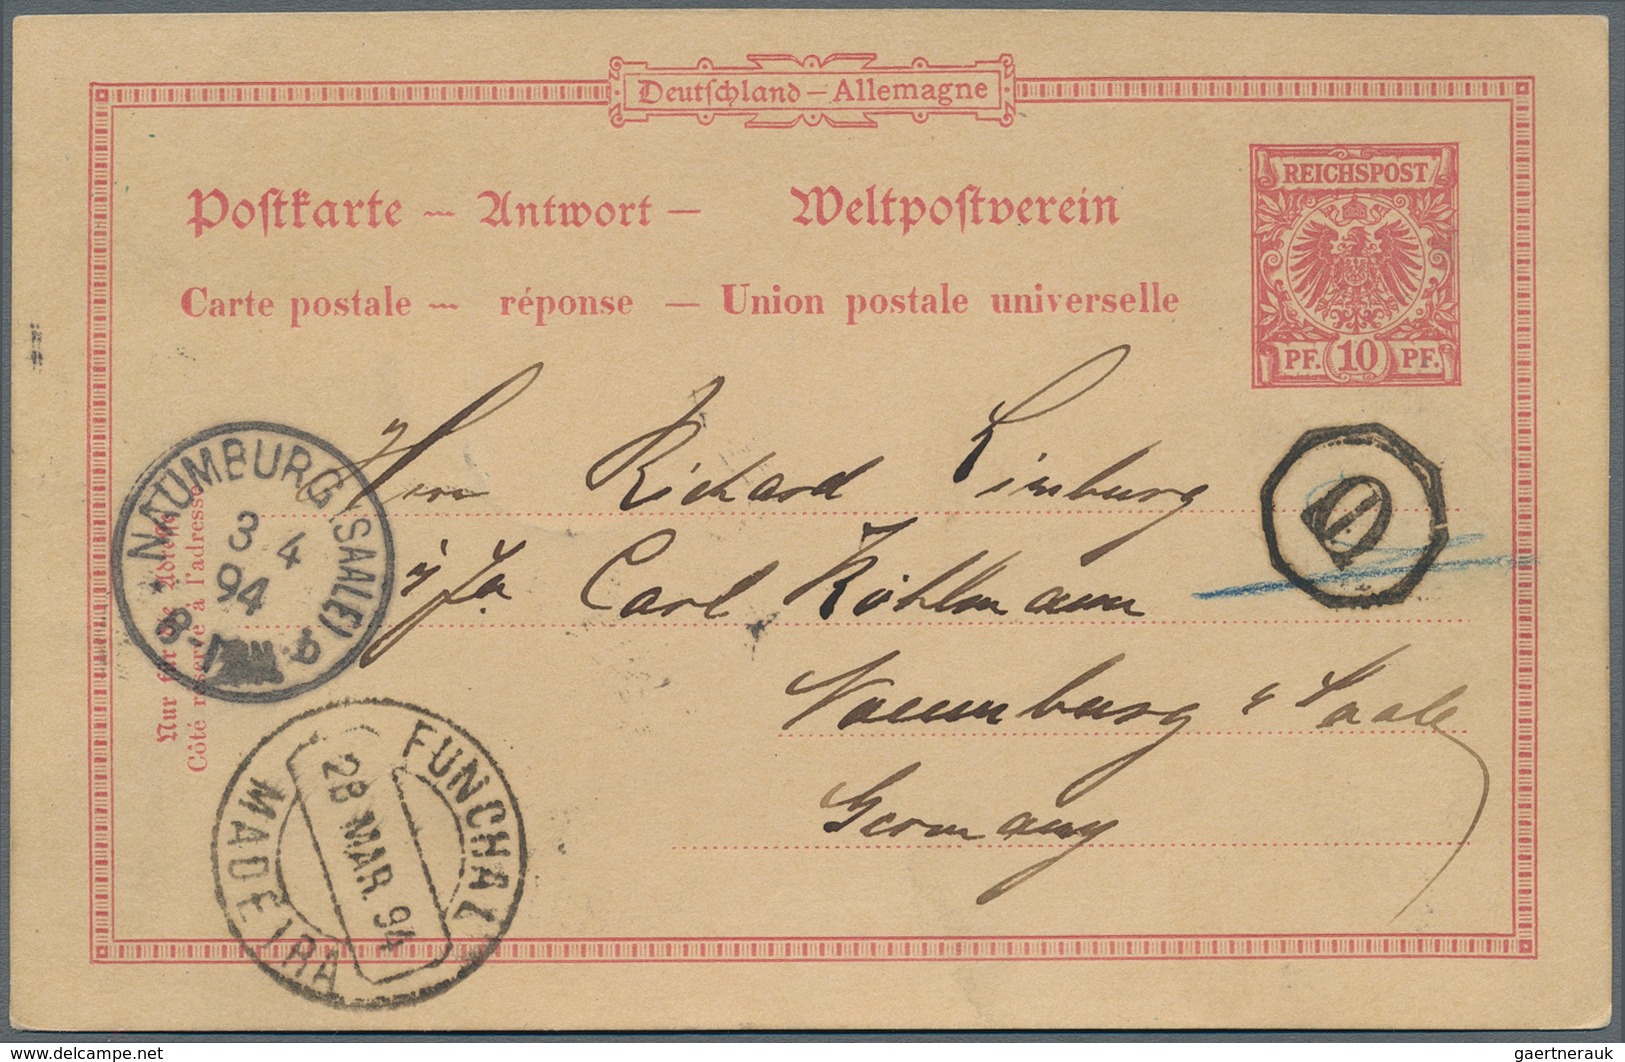 Deutſchland – Allemagne
REICHSPOST
PF. 10 PF.
Poſtkarte — Antwort — Weltpoſtverein
Carte postale — réponse — Union postale universelle
Nur für die Adresse
Côté réservé à l'adresse
NAUMBURG (SAALE)
3 4
94
8-9
Herrn Richard Limburg
i/Fa Carl Köhlmann
Naumburg a Saale
Germany
FUNCHAL
28 MAR. 94
MADEIRA
delcampe.net
gaertnerauk